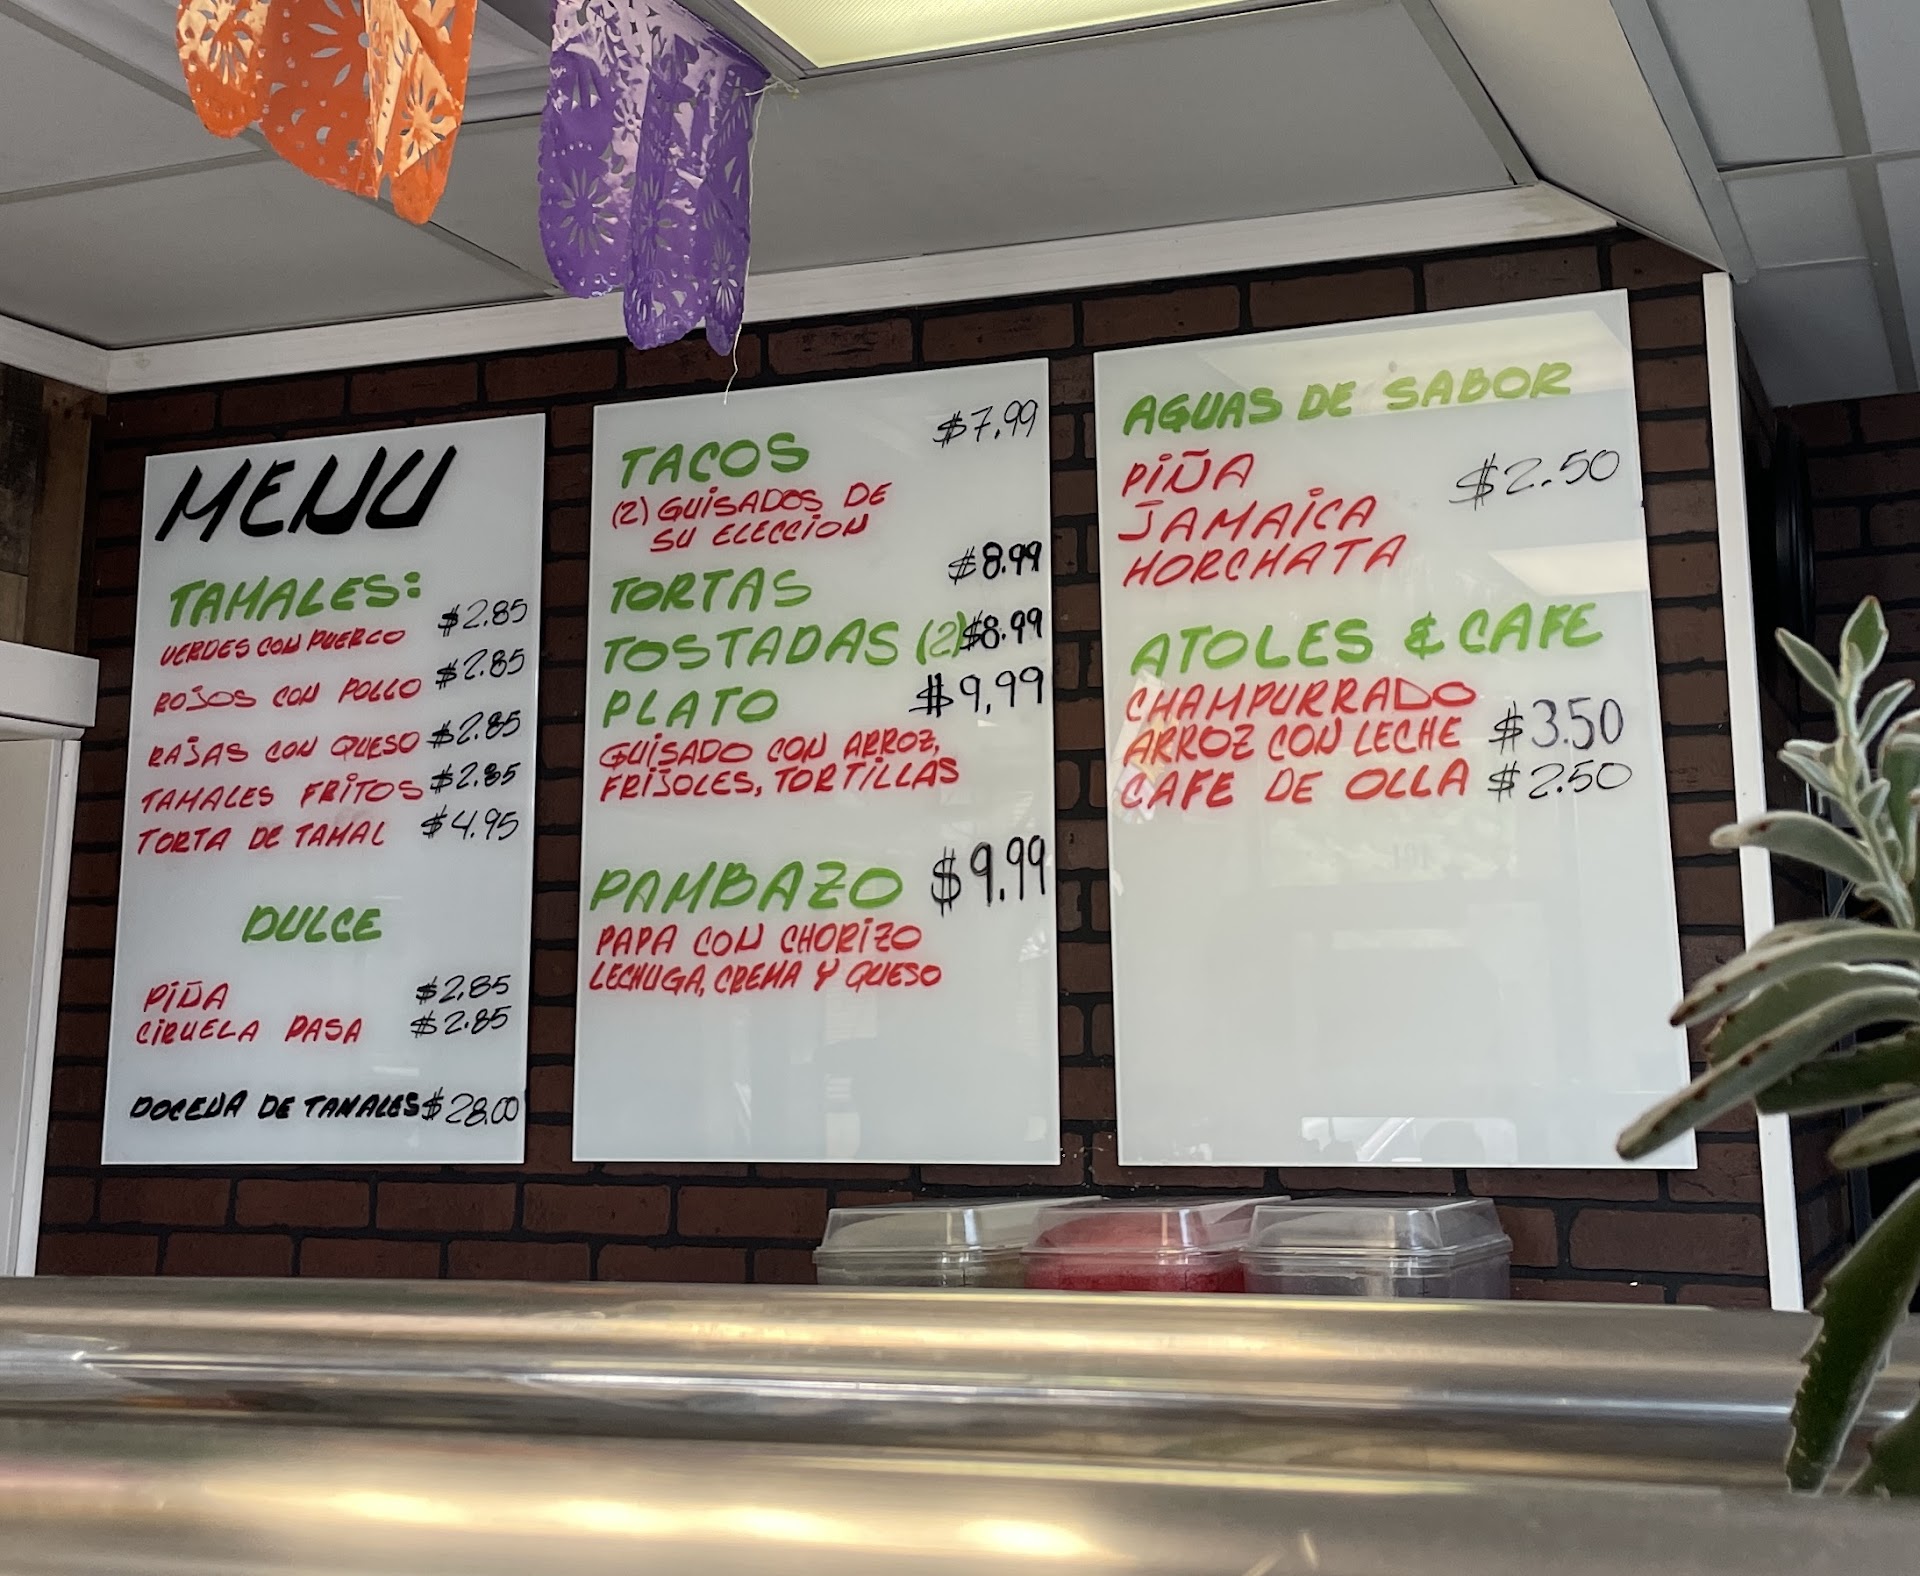 MENU
TAMALES:
VERDES CON PUERCO $2.85
ROJOS CON POLLO $2.85
RAJAS CON QUESO $2.85
TAMALES FRITOS $2.85
TORTA DE TAMAL $4.95
DULCE
PIÑA $2.85
CIRUELA PASA $2.85
DOCENA DE TAMALES $28.00
TACOS $7.99
(2) GUISADOS DE
SU ELECCION
TORTAS $8.99
TOSTADAS (2) $8.99
PLATO $9.99
GUISADO CON ARROZ,
FRIJOLES, TORTILLAS
PAMBAZO $9.99
PAPA CON CHORIZO
LECHUGA, CREMA Y QUESO
AGUAS DE SABOR
PIÑA $2.50
JAMAICA
HORCHATA
ATOLES & CAFE
CHAMPURRADO
ARROZ CON LECHE $3.50
CAFE DE OLLA $2.50